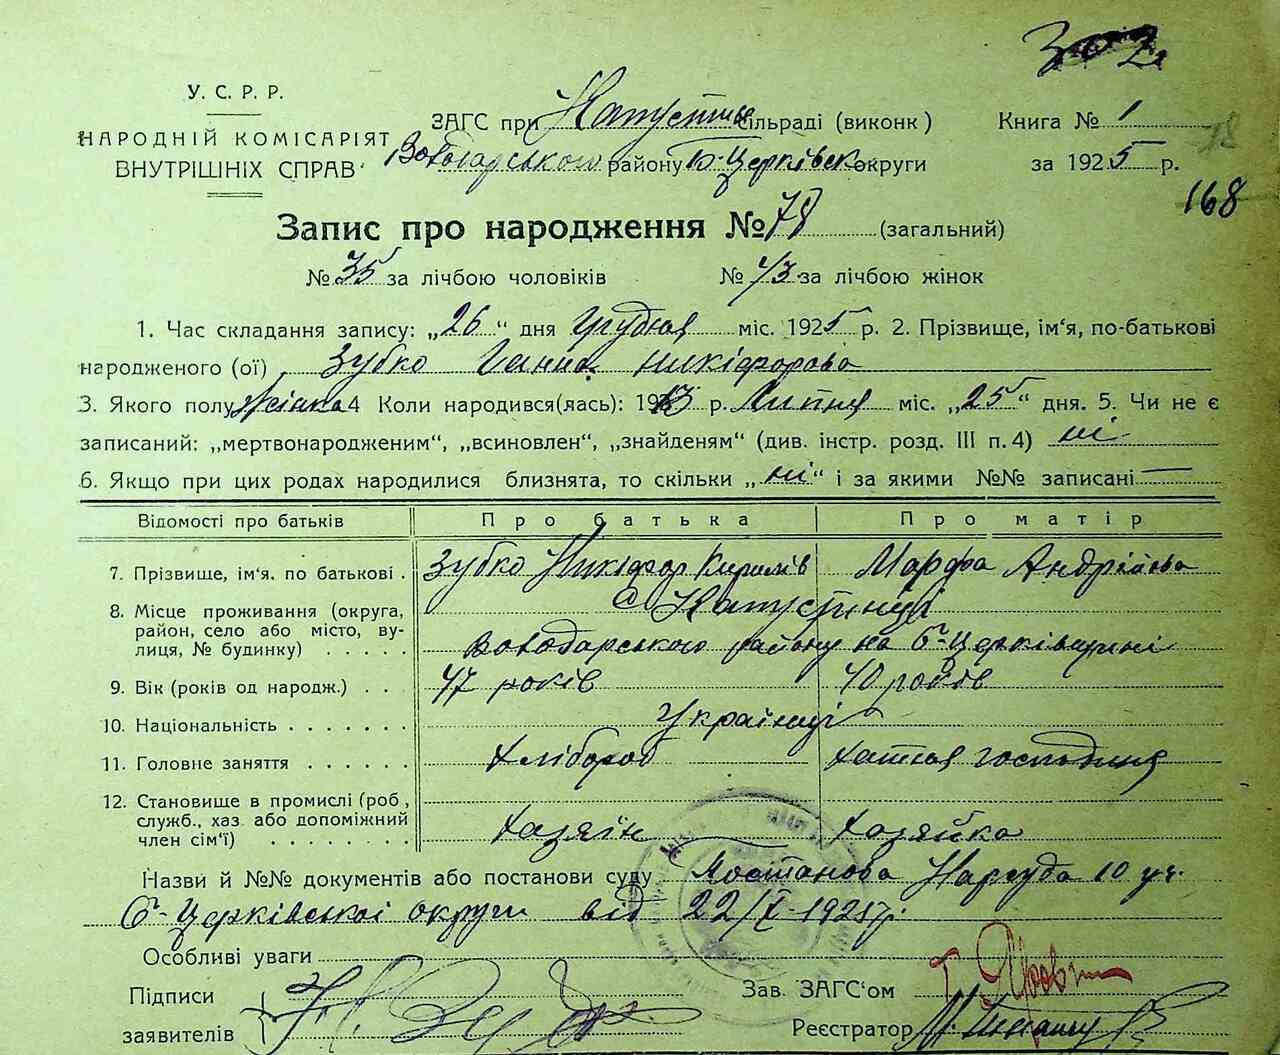 302
У. С. Р. Р.
НАРОДНІЙ КОМІСАРІЯТ
ВНУТРІШНІХ СПРАВ
ЗАГС при Капустин сільраді (виконк)
Володарського району Б-Церківськ округи
Книга № 1
за 1925 р.
78
168
Запис про народження № 78 (загальний)
№ 35 за лічбою чоловіків № 43 за лічбою жінок
1. Час складання запису: „26" дня Грудня міс. 1925 р. 2. Прізвище, ім'я, по-батькові
народженого (ої) Зубко Ганна Никіфорова
3. Якого полу жінка 4 Коли народився(лась): 1913 р. Липня міс. „25" дня. 5. Чи не є
записаний: „мертвонародженим", „всиновлен", „знайденям" (див. інстр. розд. III п. 4) ні
6. Якщо при цих родах народилися близнята, то скільки „ні" і за якими №№ записані —
Відомості про батьків Про батька Про матір
7. Прізвище, ім'я. по батькові . Зубко Никіфор Кирилів Марфа Андріїва
8. Місце проживання (округа, район, село або місто, вулиця, № будинку) . . . . . с Капустинці
Володарського району на Б-Церківщині
9. Вік (років од народж.) . . 47 років 40 років
10. Національність . . . . . . . Українці
11. Головне заняття . . . . . . Хлібороб хатняя господиня
12. Становище в промислі (роб, служб., хаз. або допоміжний член сім'ї) . . . . . . . Хазяїн Хазяйка
Назви й №№ документів або постанови суду Постанова Нарсуда 10 уч.
Б-Церківської округи від 22/X-1925 р.
Особливі уваги
Підписи
заявителів
Зав. ЗАГС'ом
Реєстратор